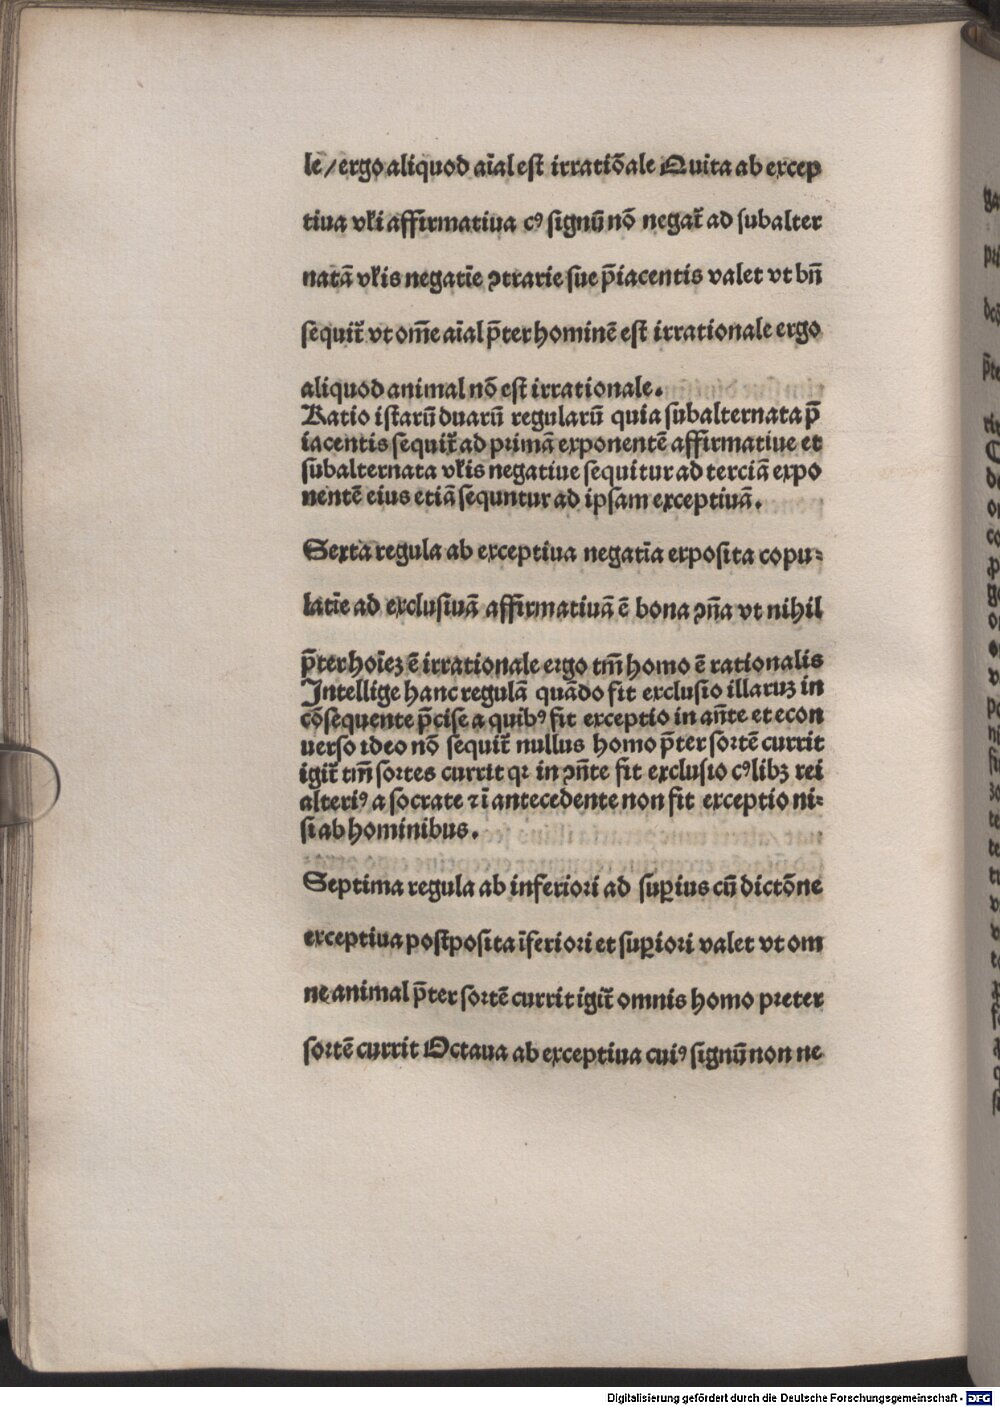 le/ergo aliquod aīal est irratiōale Quita ab excep
tiua vƚi affirmatiua cꝰ signū nō negat᷑ ad subalter
natā vƚis negatīe ꝯtrarie sue p̄iacentis valet vt bn̄
sequit᷑ vt om̄e aīal p̄ter hominē est irrationale ergo
aliquod animal nō est irrationale.
Ratio istarū duarū regularū quia subalternata p̄
iacentis sequit᷑ ad primā exponentē affirmatiue et
subalternata vƚis negatiue sequitur ad terciā expo
nentē eius etiā sequntur ad ipsam exceptiuā.
Sexta regula ab exceptiua negatīa exposita copu⸗
latīe ad exclusiuā affirmatiuā ē bona ꝯn̄a vt nihil
p̄ter hoīeꝫ ē irrationale ergo tm̄ homo ē rationalis
Intellige hanc regulā quādo fit exclusio illaruꝫ in
cōsequente p̄cise a quibꝰ fit exceptio in an̄te et econ
uerso ideo nō sequit᷑ nullus homo p̄ter sortē currit
igit᷑ tm̄ sortes currit qꝛ in ꝯn̄te fit exclusio cꝰlibꝫ rei
alteriꝰ a socrate ⁊ ī antecedente non fit exceptio ni⸗
si ab hominibus.
Septima regula ab inferiori ad suꝑius cū dictōne
exceptiua postposita īferiori et suꝑiori valet vt om
ne animal p̄ter sortē currit igit᷑ omnis homo preter
sortē currit Octaua ab exceptiua cuiꝰ signū non ne
Digitalisierung gefördert durch die Deutsche Forschungsgemeinschaft - DFG